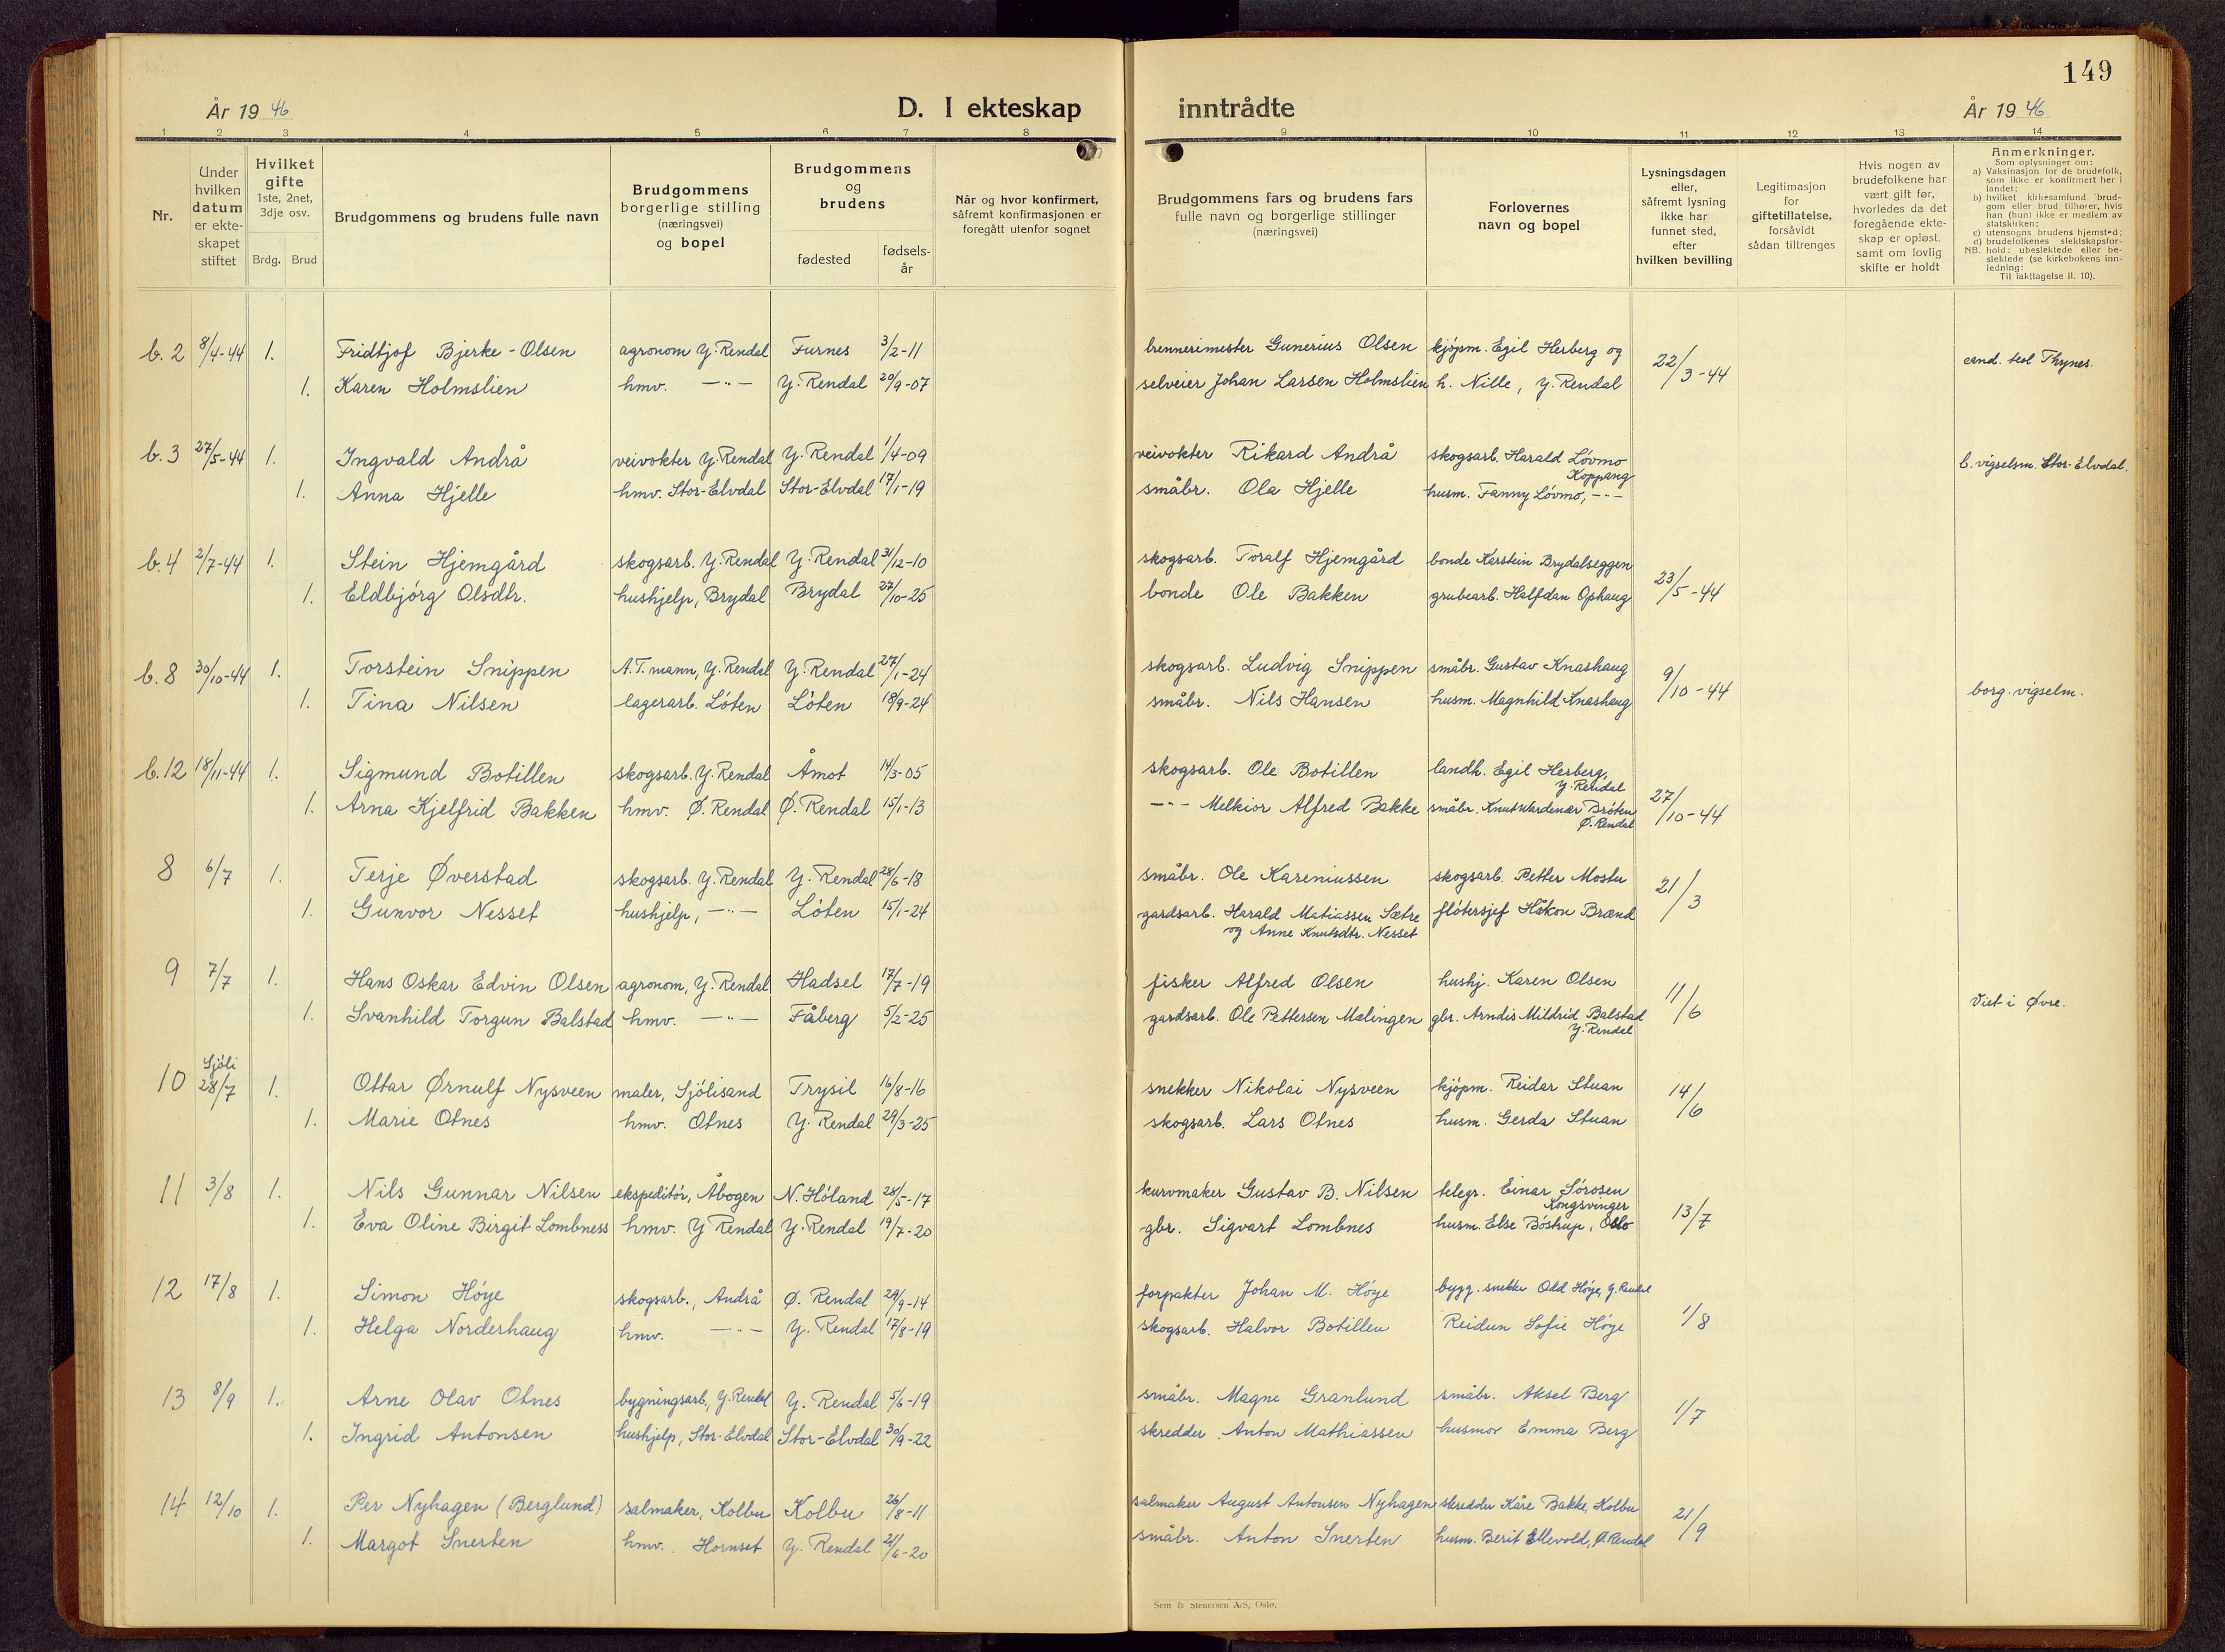 149
År 1946
D. I ekteskap inntrådte
År 1946
1 2 3 4 5 6 7 8 9 10 11 12 13 14
Nr.
Under hvilken datum er ekteskapet stiftet
Hvilket gifte 1ste, 2net, 3dje osv.
Brdg. Brud
Brudgommens og brudens fulle navn
Brudgommens borgerlige stilling (næringsvei) og bopel
Brudgommens og brudens
fødested
fødsels-år
Når og hvor konfirmert, såfremt konfirmasjonen er foregått utenfor sognet
Brudgommens fars og brudens fars fulle navn og borgerlige stillinger (næringsvei)
Forlovernes navn og bopel
Lysningsdagen eller, såfremt lysning ikke har funnet sted, efter hvilken bevilling
Legitimasjon for giftetillatelse, forsåvidt sådan tiltrenges
Hvis nogen av brudefolkene har vært gift før, hvorledes da det foregående ekteskap er opløst, samt om lovlig skifte er holdt
Anmerkninger.
Som oplysninger om:
a) Vaksinasjon for de brudefolk, som ikke er konfirmert her i landet;
b) hvilket kirkesamfund brudgom eller brud tilhører, hvis han (hun) ikke er medlem av statskirken;
c) utensogns brudens hjemsted;
d) brudefolkenes slektskapsforhold: ubeslektede eller beslektede (se kirkebokens innledning:
NB.
Til iakttagelse II. 10).
b. 2 8/4-44 1. Fridtjof Bjerke-Olsen agronom Y. Rendal Furnes 3/2-11 brennerimester Gunerius Olsen kjøpm. Egil Herberg og 22/3-44 cand. teol Thynes.
1. Karen Holmslien hmv. —"— Y. Rendal 20/9-07 selveier Johan Larsen Holmslien h. Nille, Y. Rendal
b. 3 27/5-44 1. Ingvald Andrå veivokter Y. Rendal Y. Rendal 1/4-09 veivokter Rikard Andrå skogsarb. Harald Lövmo Koppang b. vigselsm. Stor-Elvdal.
1. Anna Hjelle hmv. Stor-Elvdal Stor-Elvdal 17/1-19 småbr. Ola Hjelle husm. Fanny Lövmo, —"—
b. 4 2/7-44 1. Stein Hjemgård skogsarb. Y. Rendal Y. Rendal 31/12-10 skogsarb. Toralf Hjemgård bonde Karstein Brydalseggen 23/5-44
1. Eldbjørg Olsdtr. hushjelp, Brydal Brydal 27/10-25 bonde Ole Bakken grubearb. Halfdan Ophaug
b. 8 30/10-44 1. Torstein Snippen A.T. mann, Y. Rendal Y. Rendal 27/1-24 skogsarb. Ludvig Snippen småbr. Gustav Knashaug 9/10-44 borg. vigselm.
1. Tina Nilsen lagerarb. Löten Löten 18/9-24 småbr. Nils Hansen husm. Magnhild Knashaug
b. 12 18/11-44 1. Sigmund Botillen skogsarb. Y. Rendal Åmot 14/3-05 skogsarb. Ole Botillen landh. Egil Herberg, Y. Rendal 27/10-44
1. Arna Kjelfrid Bakken hmv. Ø. Rendal Ø. Rendal 15/1-13 —"— Melkior Alfred Bakke småbr. Knut Wardenær Bröten Ø. Rendal
8 6/7 1. Terje Øverstad skogsarb. Y. Rendal Y. Rendal 28/6-18 småbr. Ole Kareniussen skogsarb. Petter Mostu 21/3
1. Gunvor Nesset hushjelp, —"— Löten 15/1-24 gardsarb. Harald Matiassen Sætre flötersjef Håkon Brænd
og Anne Knutsdtr. Nesset
9 7/7 1. Hans Oskar Edvin Olsen agronom, Y. Rendal Hadsel 17/7-19 fisker Alfred Olsen hushj. Karen Olsen 11/6 Viet i Øvre.
1. Svanhild Torgun Balstad hmv. —"— Fåberg 5/2-25 gardsarb. Ole Pettersen Mælingen gbr. Arndis Mildrid Balstad Y. Rendal
10 Sjöli 28/7 1. Ottar Ørnulf Nysveen maler, Sjölisand Trysil 16/8-16 snekker Nikolai Nysveen kjöpm. Reidar Stuan 14/6
1. Marie Otnes hmv. Otnes Y. Rendal 29/3-25 skogsarb. Lars Otnes husm. Gerda Stuan
11 3/8 1. Nils Gunnar Nilsen ekspeditör, Åbogen N. Höland 28/5-17 kurvmaker Gustav B. Nilsen telegr. Einar Sörosen Kongsvinger 13/7
1. Eva Oline Birgit Lombness hmv. Y Rendal Y. Rendal 19/7-20 gbr. Sigvart Lombnes husm. Else Böstrup, Oslo
12 17/8 1. Simon Höye skogsarb., Andrå Ø. Rendal 29/9-14 forpakter Johan M. Höye bygg. snekker Odd Höye, Y. Rendal 1/8
1. Helga Norderhaug hmv. —"— Y. Rendal 17/8-19 skogsarb. Halvor Botillen Reidun Sofie Höye
13 8/9 1. Arne Olav Otnes bygningsarb., Y. Rendal Y. Rendal 5/6-19 småbr. Magne Granlund småbr. Aksel Berg 1/7
1. Ingrid Antonsen hushjelp, Stor-Elvdal Stor-Elvdal 30/9-22 skredder Anton Mathiassen husmor Emma Berg
14 12/10 1. Per Nyhagen (Berglund) salmaker, Kolbu Kolbu 26/8-11 salmaker August Antonsen Nyhagen skredder Kåre Bakke, Kolbu 21/9
1. Margot Snerten hmv. Hornset Y. Rendal 21/6-20 småbr. Anton Snerten husm. Berit Ellevold, Ø. Rendal
Sem & Stenersen A/S, Oslo.